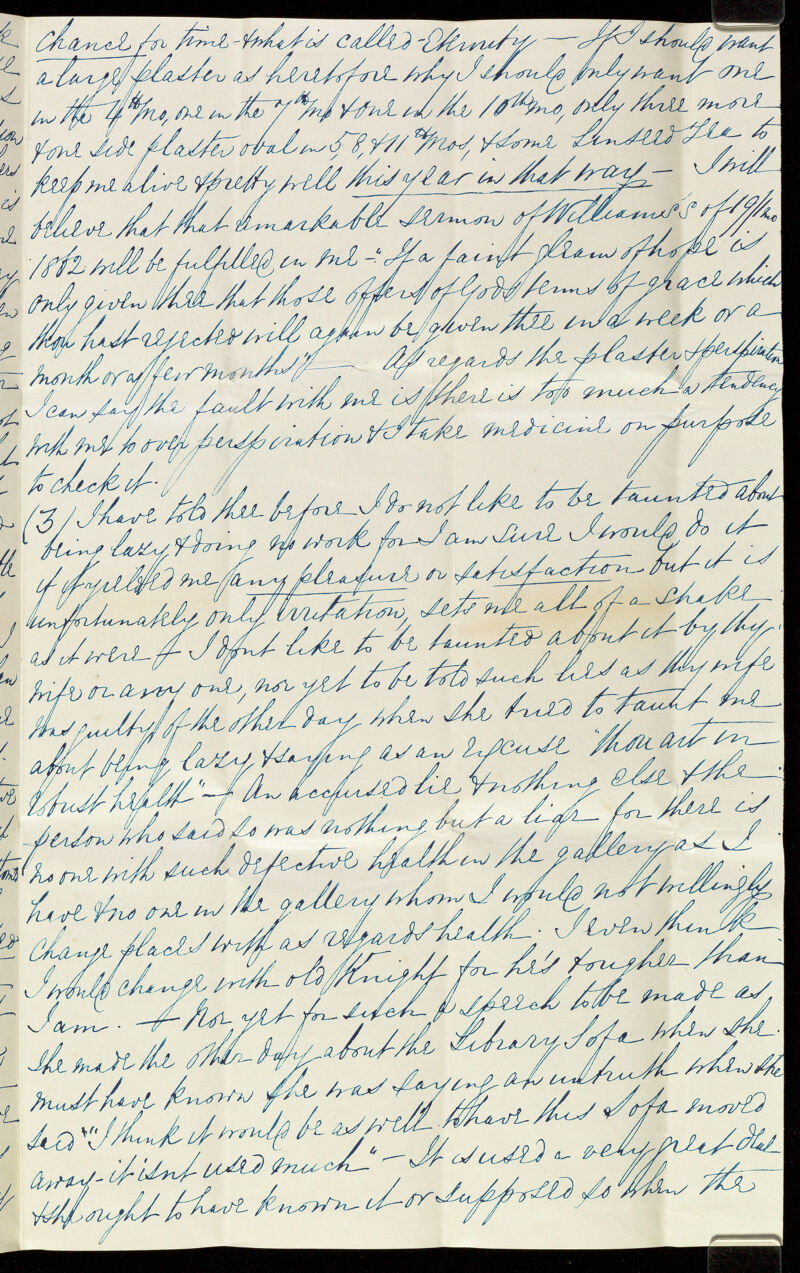 chance for time & what is called - Eternity - If I should want
a large plaster as heretofore why I should only want one
in the 4th Mo, one in the 7th Mo & one in the 10th mo, only three more
& one side plaster oval in 5, 8, & 11th Mos, & some Linseed Tea to
keep me alive & pretty well this year in that way - I will
believe that that remarkable sermon of Williams's of 19/1mo
1862 will be fulfilled in me - "If a faint gleam of hope is
only given thee that those offers of Gods terms of grace which
thou hast rejected will again be given thee in a week or a
month or a few months" - As regards the plaster & perspiration
I can say the fault with me is there is too much a tendency
with me to over perspiration & I take medicine on purpose
to check it.
(3) I have told thee before I do not like to be taunted about
being lazy & doing no work for I am sure I would do it
if it yielded me any pleasure or satisfaction but it is
unfortunately only irritation, sets me all of a shake
as it were - I dont like to be taunted about it by thy
wife or any one, nor yet to be told such lies as thy wife
was guilty of the other day when she tried to taunt me
about being lazy & saying as an excuse "thou art in
robust health" - An accursed lie & nothing else & the
person who said so was nothing but a liar for there is
no one with such defective health in the gallery as I
have & no one in the gallery whom I would not willingly
change places with as regards health. I even think
I would change with old Knight for he's tougher than
I am. - Nor yet for such a speech to be made as
she made the other day about the Library Sofa when she
must have known she was saying an untruth when she
said "I think it would be as well to have this Sofa moved
away - it isnt used much" - It is used a very great deal
& she ought to have known it or supposed so when the